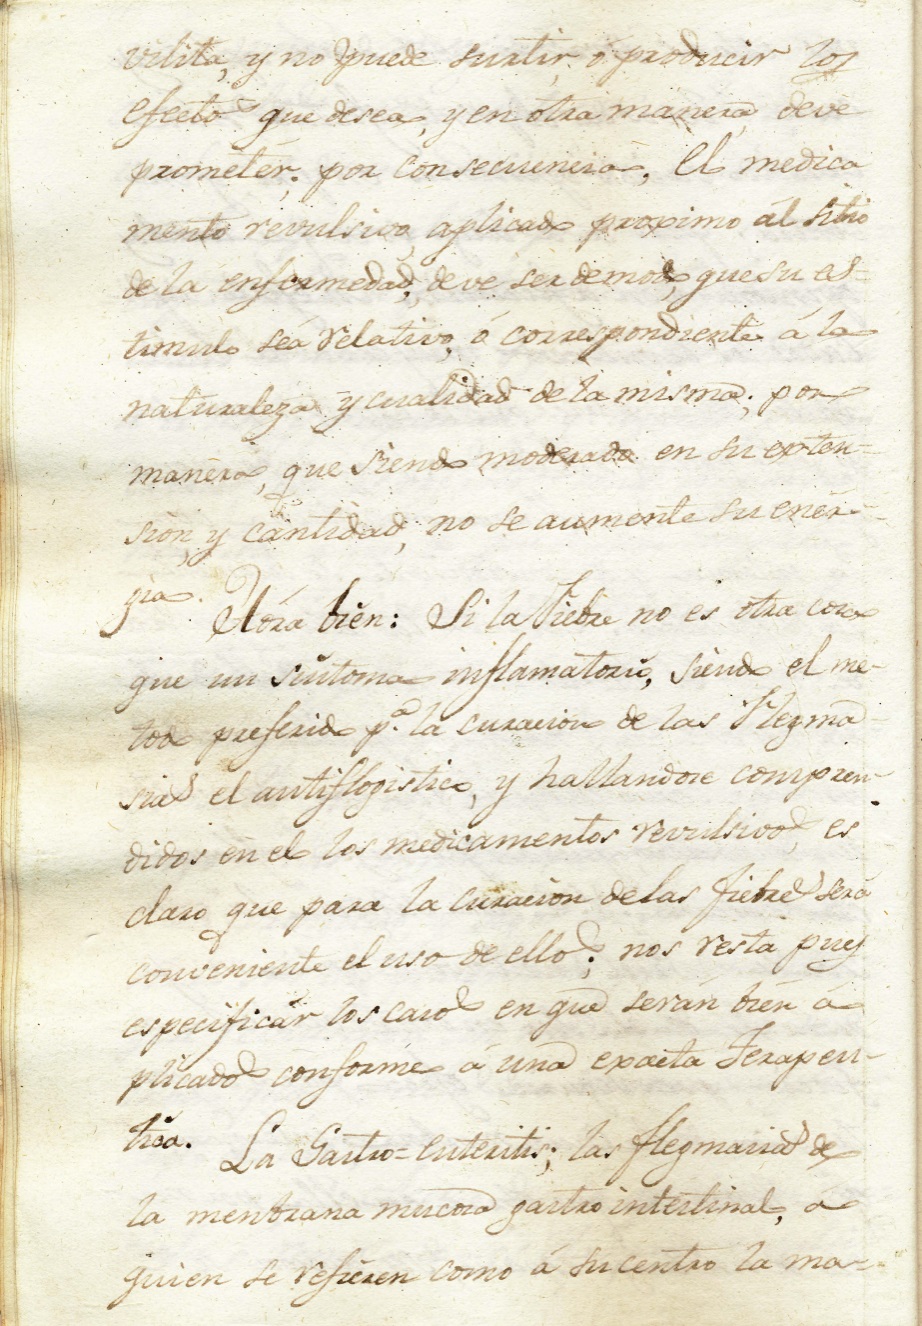 vilita, y no puede surtir, ó producir los
efectos que desea, y en otra manera deve
prometér; por consecuencia, El medica
mento revulsivo, aplicado proximo ál sitio
de la enfermedad, deve ser de modo, que su es-
timulo seá relativo, ó correspondiente á la
naturaleza y cualidad de la misma; por
manéra, que siendo moderado en su exten=
sión, y cántidad, no se aumente su enér-
jia. Aóra bién: Si la Fiebre no es otra cosa
que un síntoma inflamatorio, siendo el me-
todo preferido pª. la curacion de las Flegma-
sias el antiflogistico, y hallandose compren-
didos en el los medicamentos revulsivos, es
claro que para la curacion de las fiebres será
conveniente el uso de ellos; nos resta pues
especificár los casos en que serán bién á
plicados conforme á una exacta Terapeu-
tica. La Gastro=enteritis; las flegmasias de
la menbrana mucosa gastro intestinal, á
quien se refiéren como á su centro la ma-